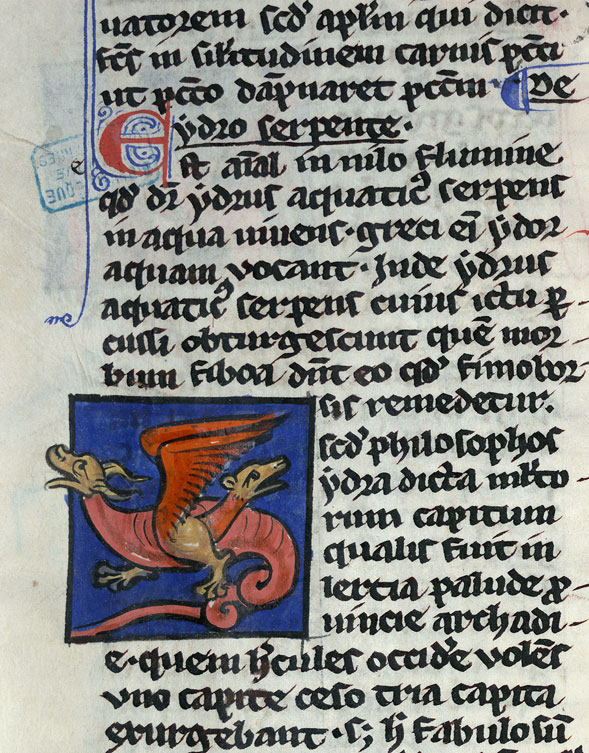 uatorem scd' aplm qui dicit·
fcs in silitudinem carnis pcci
ut pcco dapnaret pccm· De
ydro serpente·
Est aial in nilo flumine
qd' dr ydrus aquatic' serpens
in aqua uiuens· greci ei ydor
aquam vocant· Inde ydrus
aquatic' serpens cuius ictu per
cussi obturgescunt quē mor-
bum aboa dnt eo qd' fimo bor
sis remedetur·
scd' philosophos
ydra dicta mlto-
rum capitum
qualis fuit in
lertia palude pro-
uincie archadi-
e· quem hcules occide volēs
vno capite ceso tria capita
exurgebant· s; h fabulosū